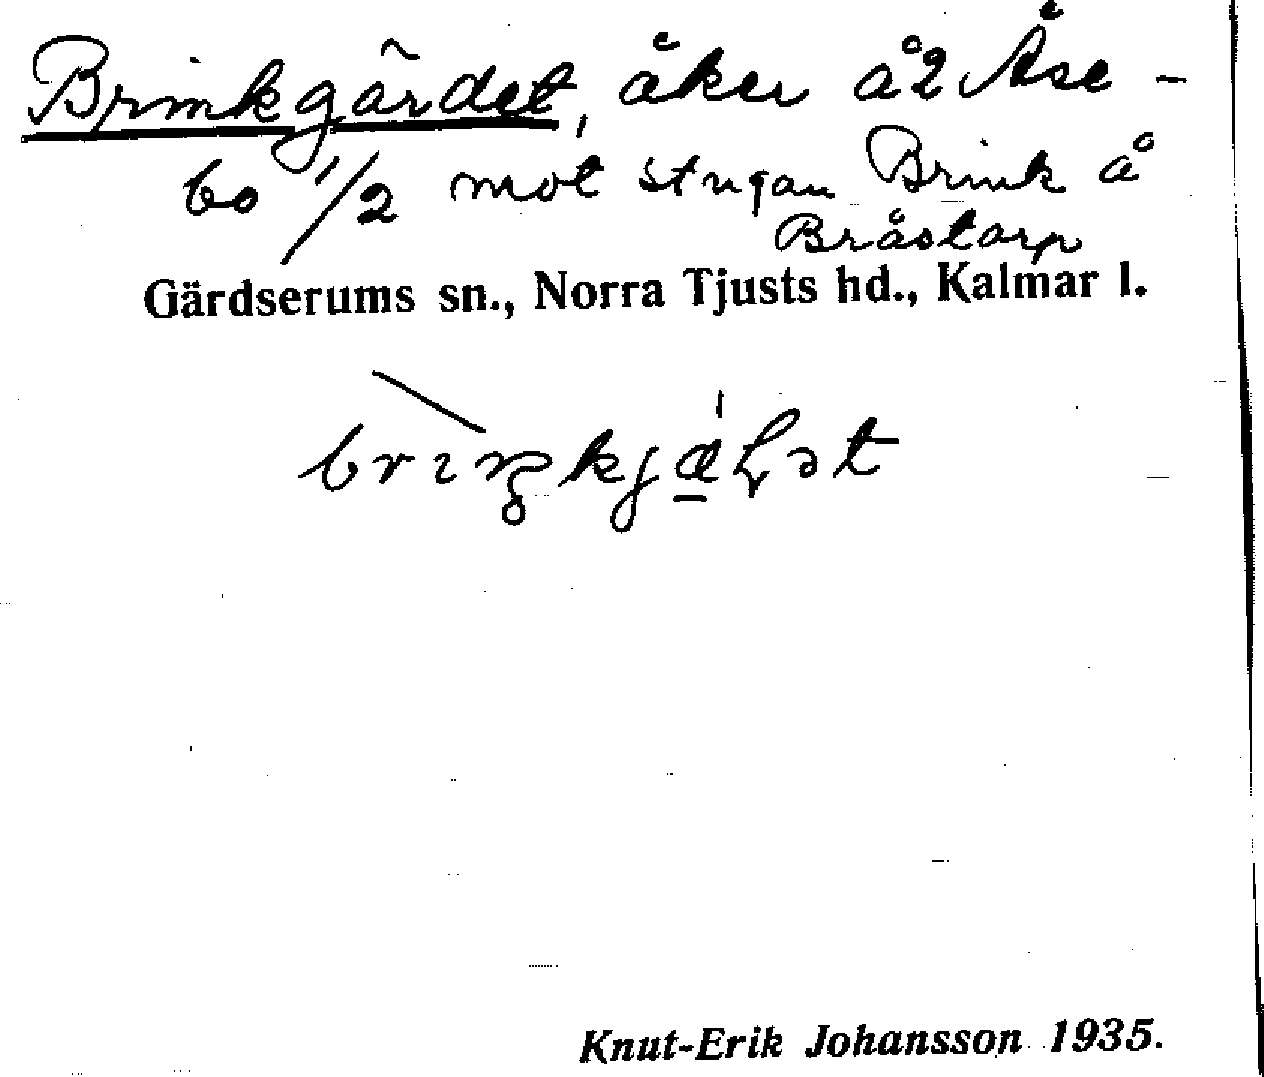 Brinkgärdet, åker å 2 Åse-
bo 1/2 mot stugan Brink å
Bråstorp
Gärdserums sn., Norra Tjusts hd., Kalmar l.
Knut-Erik Johansson 1935.